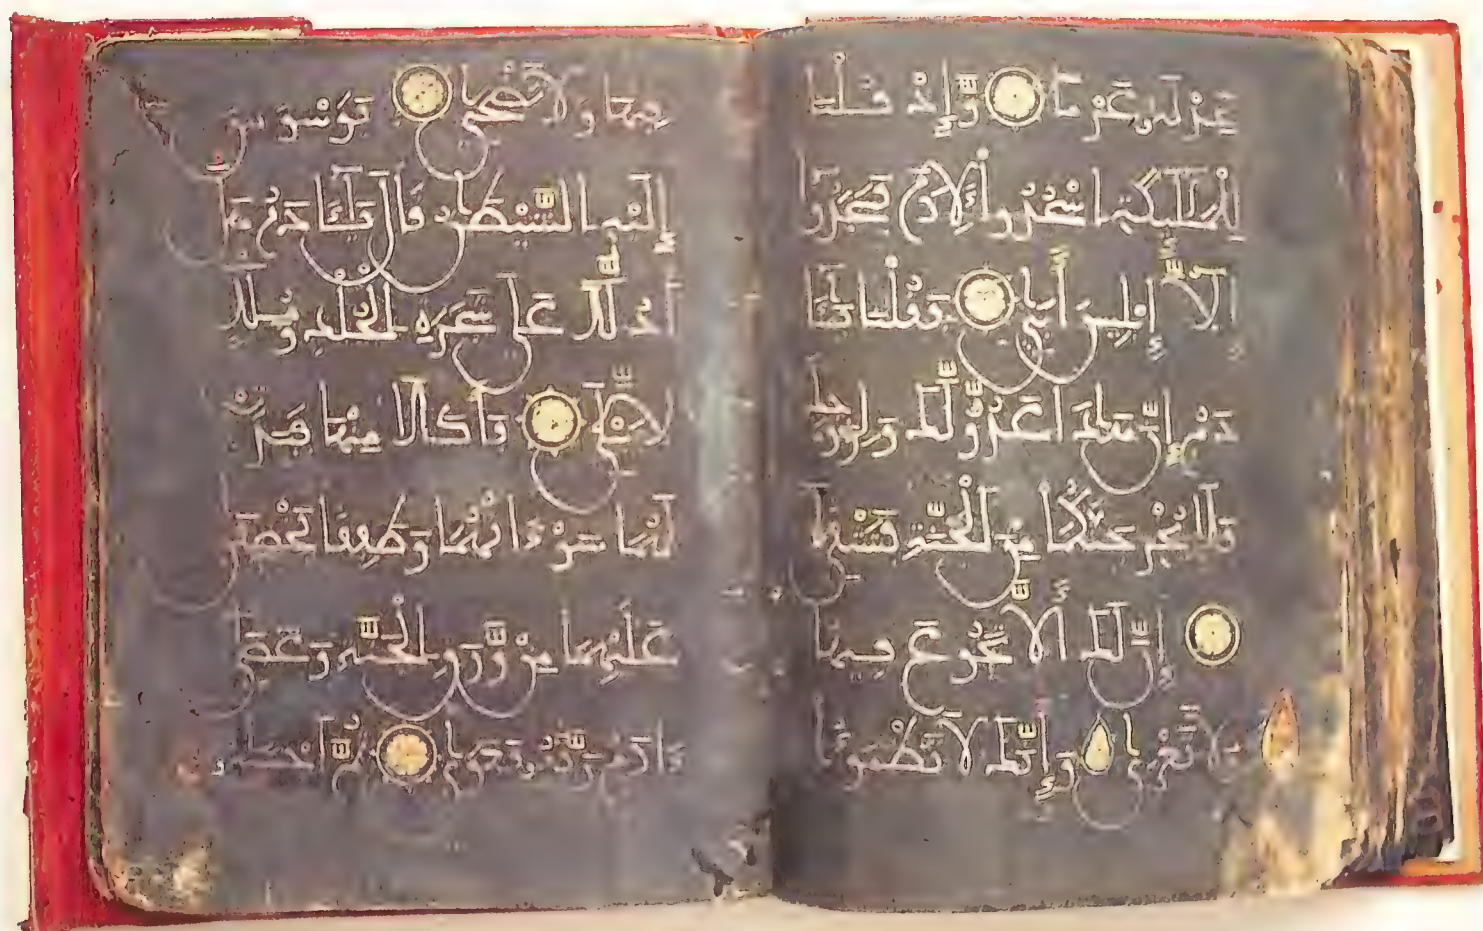 نجد له عزما وإذ قلنا
للملئكة اسجدوا لأدم فسجدوا
إلا إبليس أبى فقلنا يا
دم إن هذا عدو لك ولزوجك
فلا يخرجنكما من الجنة فتشقى
إن لك ألا تجوع فيها
ولا تعرى وإنك لا تظمؤا
فيها ولا تضحى فوسوس
إليه الشيطن قال يئادم هل
أدلك على شجرة الخلد وملك
لا يبلى فأكلا منها فبدت
لهما سوءاتهما وطفقا يخصفن
عليهما من ورق الجنة وعصى
ءادم ربه فغوى ثم اجتبه